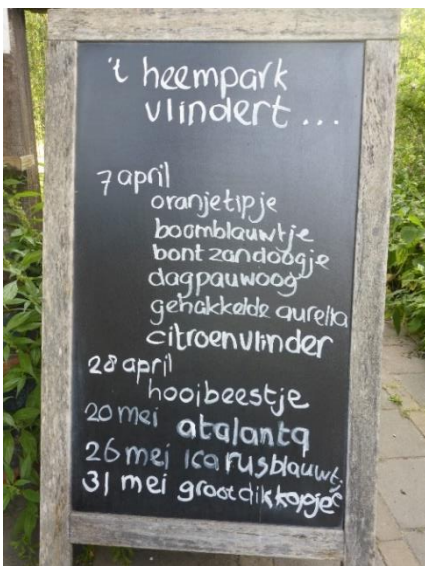 't heempark
vlindert...
7 april
oranjetipje
boomblauwtje
bont zandoogje
dagpauwoog
gehakkelde aurelia
citroenvlinder
28 april
hooibeestje
20 mei atalanta
26 mei Icarusblauwtje
31 mei groot dikkopje